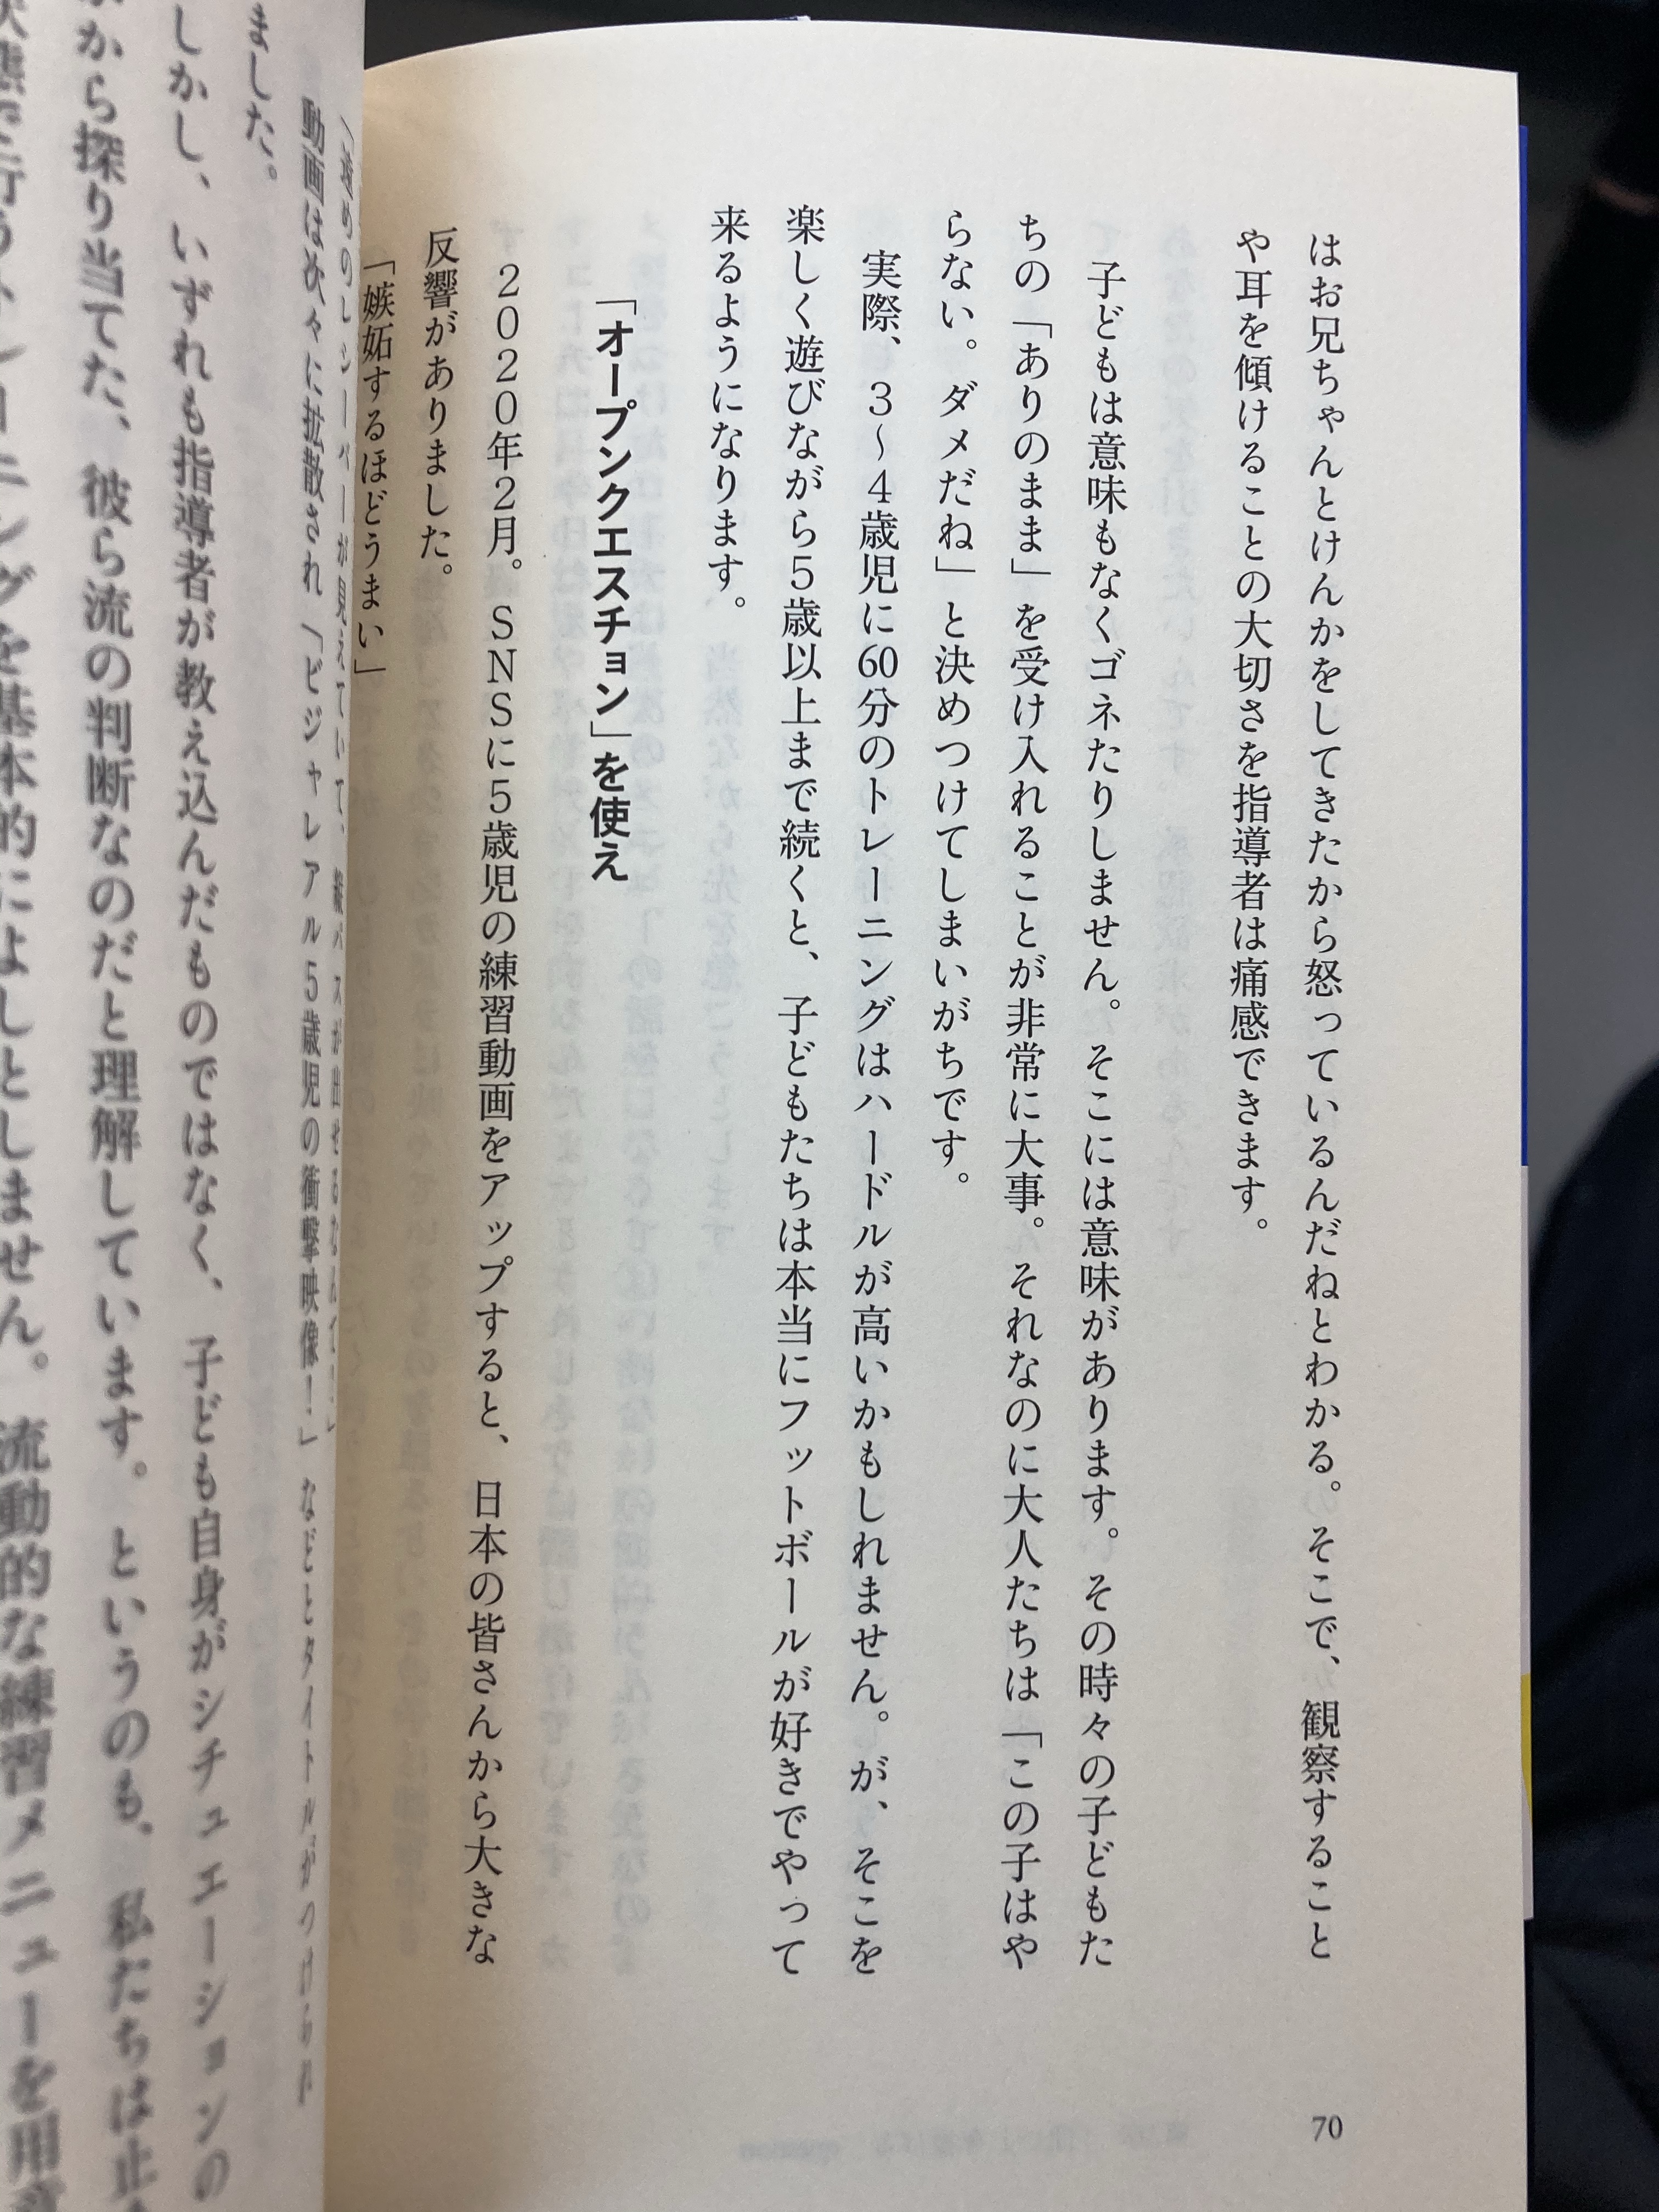 はお兄ちゃんとけんかをしてきたから怒っているんだねとわかる。そこで、観察すること
や耳を傾けることの大切さを指導者は痛感できます。
子どもは意味もなくゴネたりしません。そこには意味があります。その時々の子どもた
ちの「ありのまま」を受け入れることが非常に大事。それなのに大人たちは「この子はや
らない。ダメだね」と決めつけてしまいがちです。
実際、3〜4歳児に60分のトレーニングはハードルが高いかもしれません。が、そこを
楽しく遊びながら5歳以上まで続くと、子どもたちは本当にフットボールが好きでやって
来るようになります。
「オープンクエスチョン」を使え
2020年2月。SNSに5歳児の練習動画をアップすると、日本の皆さんから大きな
反響がありました。
「嫉妬するほどうまい」
70
動画は次々に拡散され「ビジャレアル5歳児の衝撃映像！」などとタイトルがつけられ
ました。
しかし、いずれも指導者が教え込んだものではなく、子ども自身がシチュエーションの
から探り当てた、彼ら流の判断なのだと理解しています。というのも、私たちは止
行うトレーニングを基本的によしとしません。流動的な練習メニューを用意